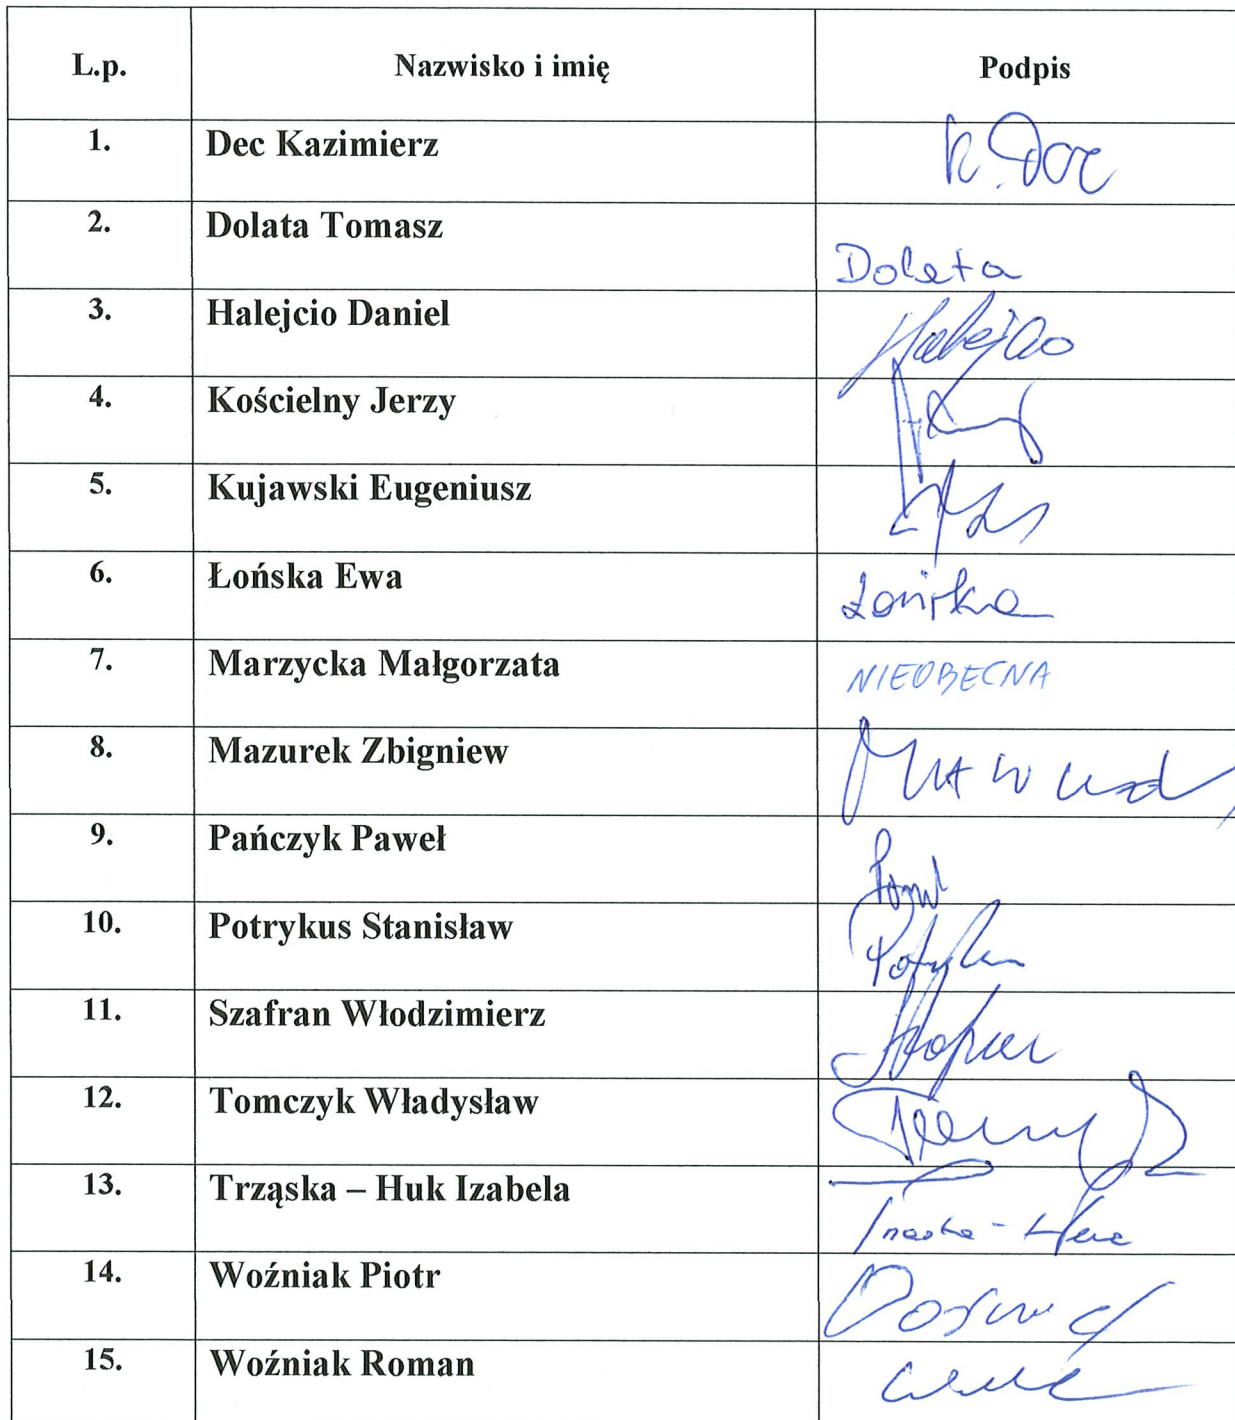 L.p. Nazwisko i imię Podpis
1. Dec Kazimierz K. Dec
2. Dolata Tomasz Dolata
3. Halejcio Daniel Halejcio
4. Kościelny Jerzy
5. Kujawski Eugeniusz
6. Łońska Ewa Łońska
7. Marzycka Małgorzata NIEOBECNA
8. Mazurek Zbigniew
9. Pańczyk Paweł
10. Potrykus Stanisław
11. Szafran Włodzimierz
12. Tomczyk Władysław
13. Trząska – Huk Izabela
14. Woźniak Piotr
15. Woźniak Roman